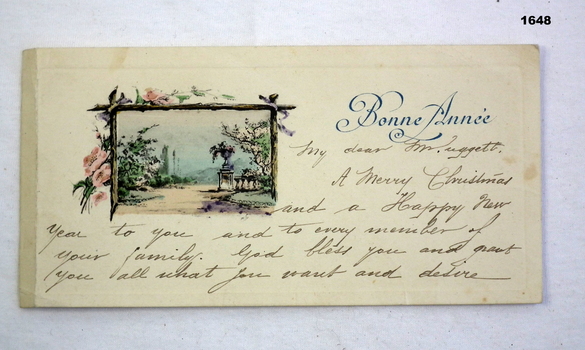 1648
Bonne Année
My dear Mr. uggett.
A Merry Christmas
and a Happy New
Year to you and to every member of
your family. God bless you and grant
you all what you want and desire